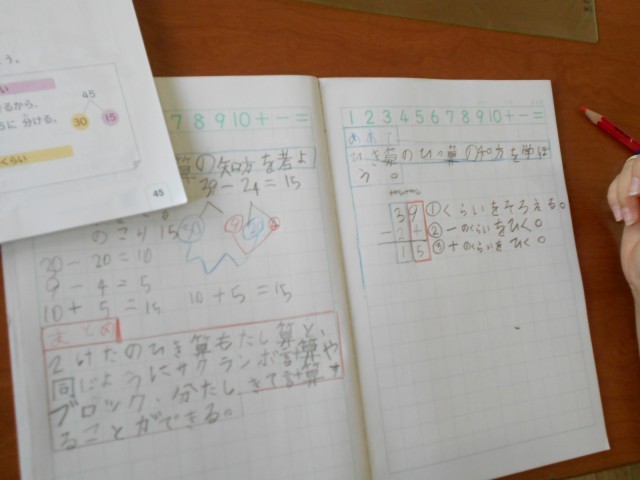 う。
い
45
るから、
らに 分ける。
30 15
くらい
45
7 8 9 10 + - =
算の知方を考よ
39 - 24 = 15
のこり 15
20 - 20 = 10
9 - 4 = 5
10 + 5 = 15
10 + 5 = 15
まとめ
2けたのひき算もたし算と、
同じようにサクランボ計算や
ブロック、分たし、きて計算す
ることができる。
1 2 3 4 5 6 7 8 9 10 + - =
めあて
ひき算のひっ算の知方を学ぼ
う。
39 ①くらいをそろえる。
-24 ②一のくらいをひく。
15 ③十のくらいをひく。